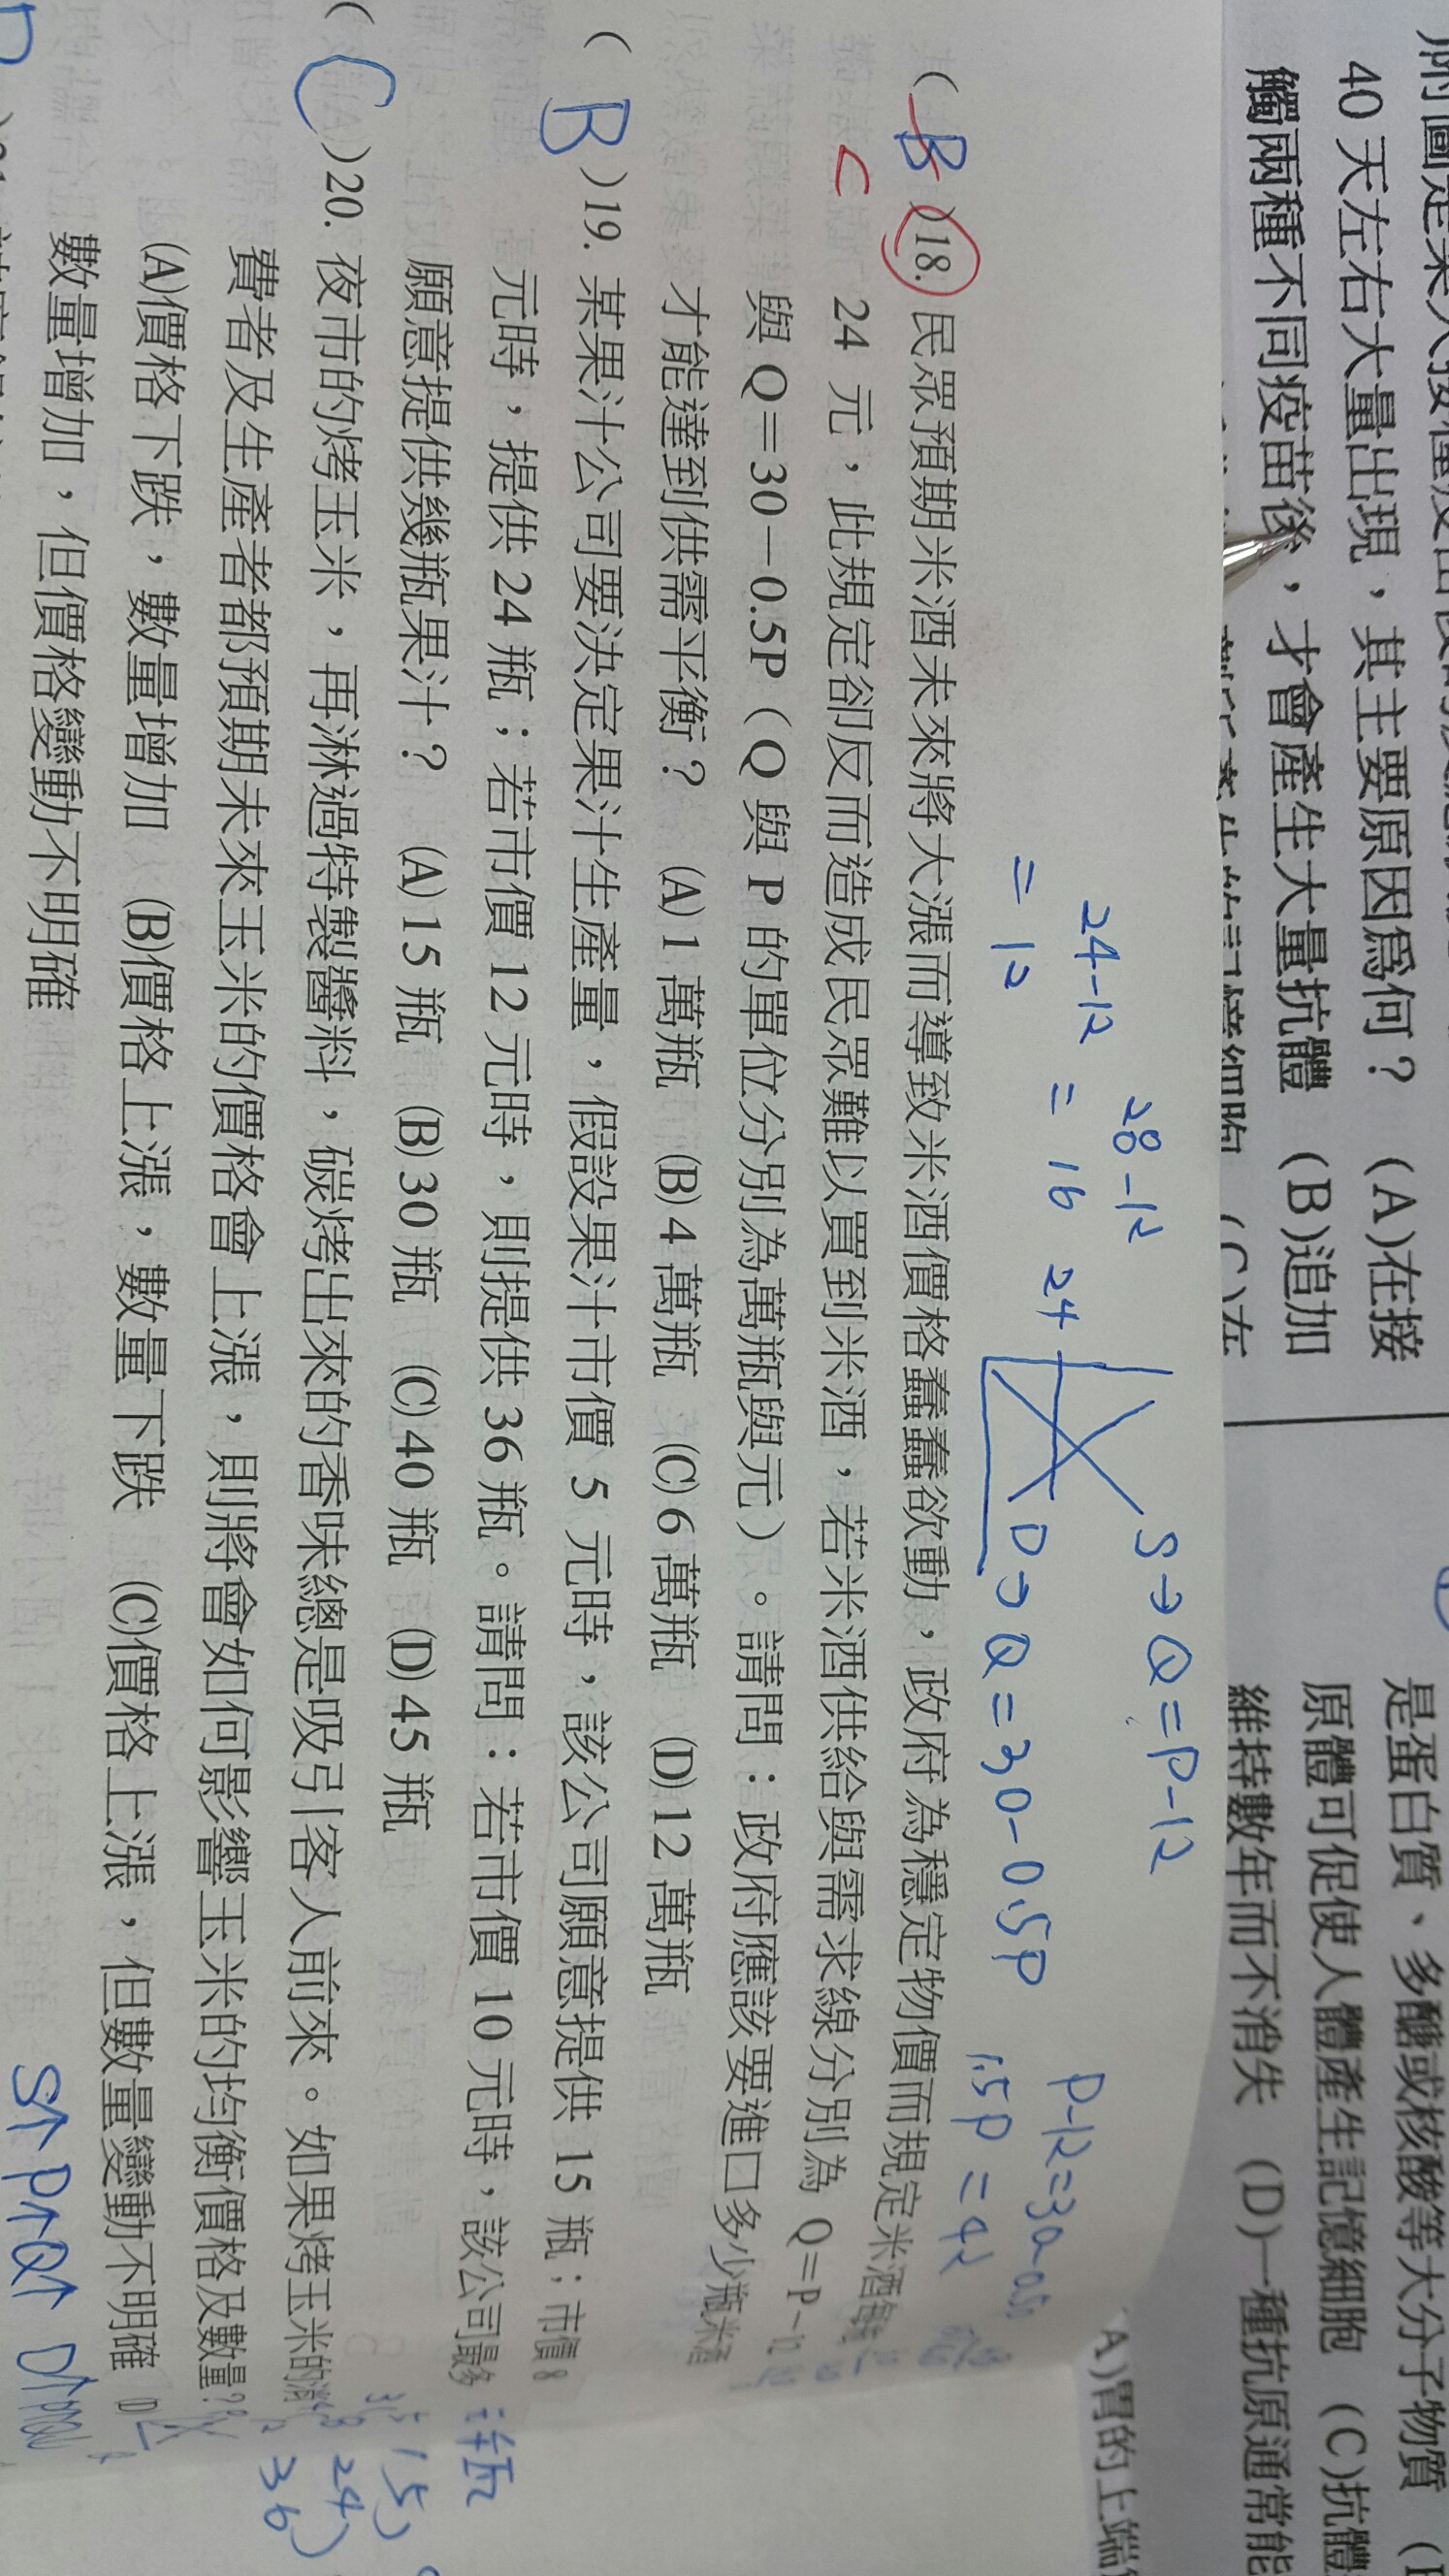 40天左右大量出現，其主要原因為何？ (A)在接
觸兩種不同疫苗後，才會產生大量抗體 (B)追加
是蛋白質、多醣或核酸等大分子物質
原體可促使人體產生記憶細胞 (C)抗體
維持數年而不消失 (D)一種抗原通常能
A)胃的上端
28-12
24-12 = 16
= 12
24
S→Q=P-12
D→Q=30-0.5P
1.5P=42
(B)18. 民眾預期米酒未來將大漲而導致米酒價格蠢蠢欲動，政府為穩定物價而規定米酒每
C
24 元，此規定卻反而造成民眾難以買到米酒，若米酒供給與需求線分別為 Q=P-12
與 Q=30-0.5P（Q 與 P 的單位分別為萬瓶與元）。請問：政府應該要進口多少瓶米酒
才能達到供需平衡？ (A)1 萬瓶 (B)4 萬瓶 (C)6 萬瓶 (D)12 萬瓶
(B)19. 某果汁公司要決定果汁生產量，假設果汁市價 5 元時，該公司願意提供 15 瓶；市價 8
元時，提供 24 瓶；若市價 12 元時，則提供 36 瓶。請問：若市價 10 元時，該公司最多
願意提供幾瓶果汁？ (A)15 瓶 (B)30 瓶 (C)40 瓶 (D)45 瓶
15)
24)
36)
(C)20. 夜市的烤玉米，再淋過特製醬料，碳烤出來的香味總是吸引客人前來。如果烤玉米的消
費者及生產者都預期未來玉米的價格會上漲，則將會如何影響玉米的均衡價格及數量？
(A)價格下跌，數量增加 (B)價格上漲，數量下跌 (C)價格上漲，但數量變動不明確 (D)
數量增加，但價格變動不明確
S↑P↑Q↑